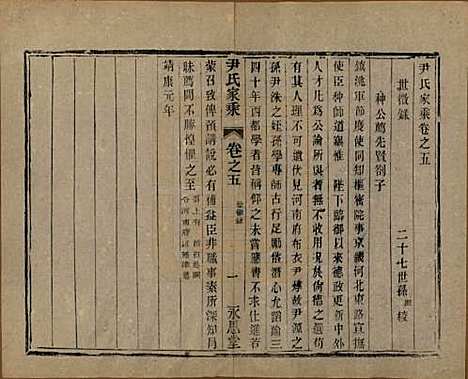 尹氏家乘卷之五
世徵錄　二十七世孫　校
种公薦先賢劄子
鎮洮軍節度使同樞密院事京畿河北東路宣撫
使臣种師道奏惟　陛下踐御以來德政更新中外
人才凡爲公論所與者無不甄擢尚有逸德之遺茍
有其人理不可遺伏見河南府布衣尹焞故尹源之
孫尹洙之姪孫學專師古行足勵俗潛心允蹈踰三
四十年西都學者苕稱仰之未嘗應書不求仕進若
蒙召致俾預講說必有補益臣非職事素所深知冒
昧薦聞不勝惶懼之至
靖康元年
尹氏家乘
卷之五
世徵錄
一
永思堂